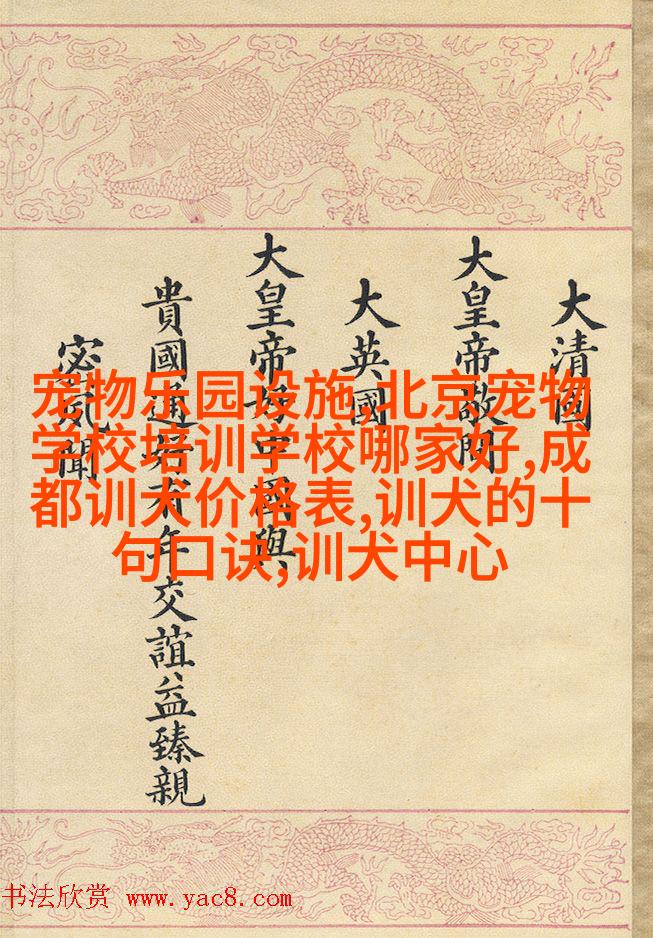 大清國
大皇帝敬問
大英國
大皇帝好中國與
貴國通好有年交誼益臻親
密聞
宠物乐园设施,北京宠物
学校培训学校哪家好,成
都训犬价格表,训犬的十
句口诀,训犬中心
书法欣赏 www.yac8.com